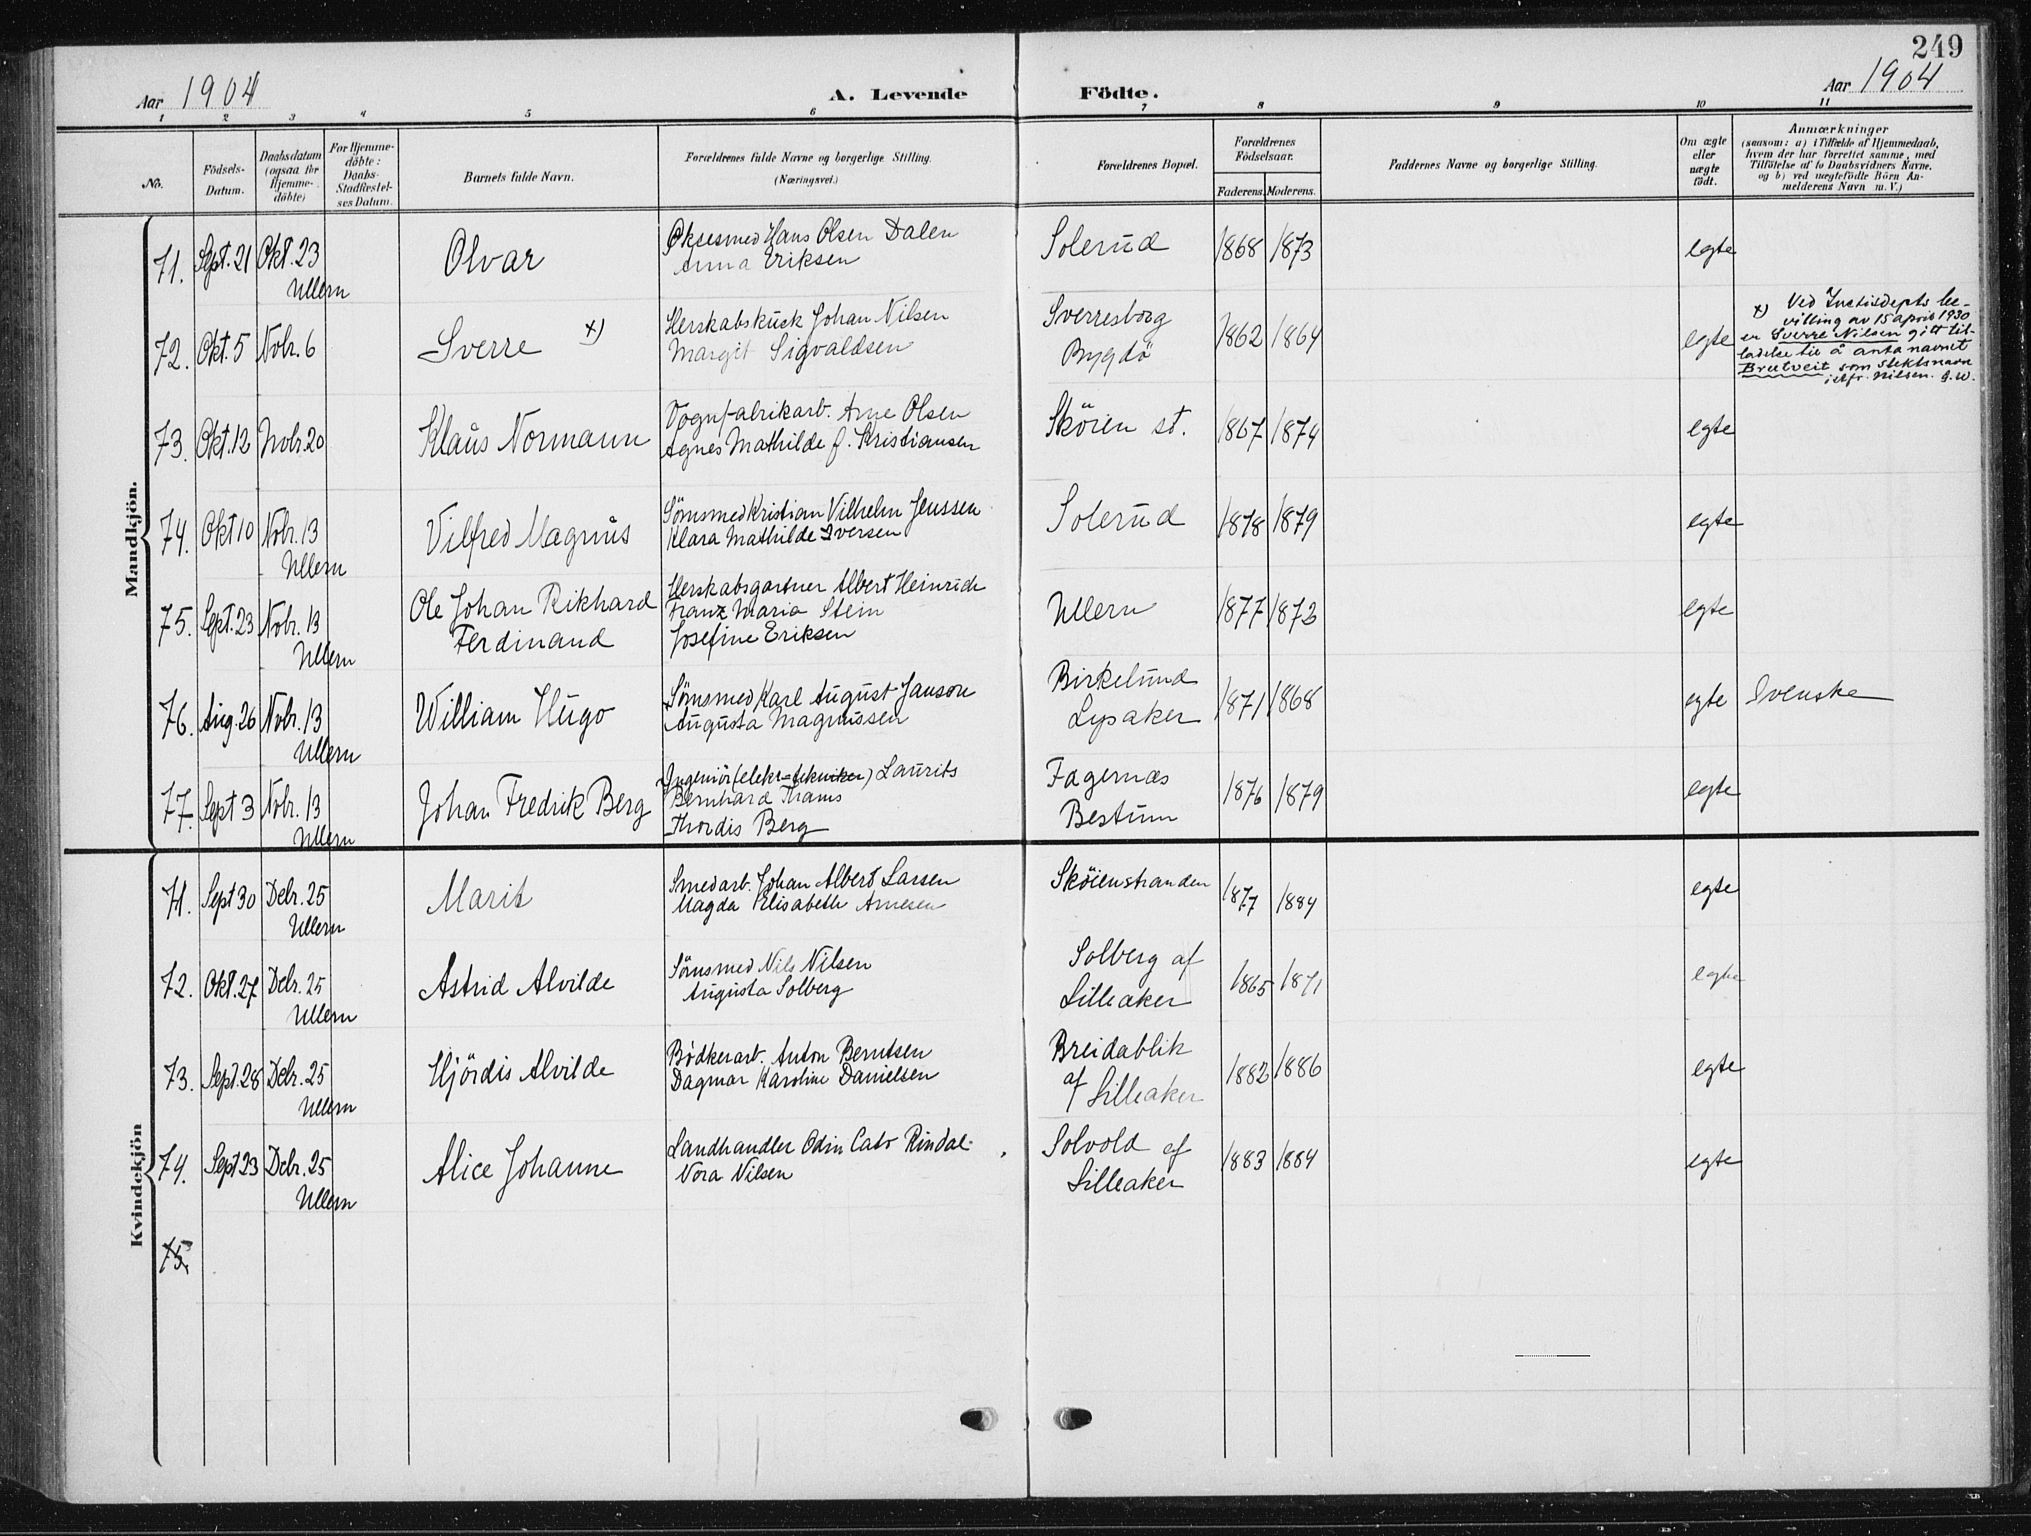 249
Aar 1904
A. Levende Födte.
Aar 1904
1 2 3 4 5 6 7 8 9 10 11
No.
Födsels-Datum.
Daabsdatum (ogsaa for Hjemme-döbte)
For Hjemme-döbte: Daabs-Stadfæstel-ses Datum.
Barnets fulde Navn.
Forældrenes fulde Navne og borgerlige Stilling. (Næringsvei.)
Forældrenes Bopæl.
Forældrenes Födselsaar.
Faderens. Moderens.
Faddernes Navne og borgerlige Stilling.
Om ægte eller uægte födt.
Anmærkninger
(saasom: a) i Tilfælde af Hjemmedaab,
hvem der har forrettet samme, med
Tilföielse af to Daabsvidners Navne.
og b) ved uægtefödte Börn An-
melderens Navn m. V.)
Mandkjön.
71. Sept. 21 Okt. 23 Olvar Øksesmed Hans Olsen Dalen Solerud 1868 1873 egte
Ullern Anna Eriksen
72. Okt. 5 Nobr. 6 Sverre x) Herskabskusk Johan Nilsen Sverresborg 1862 1864 egte
Margit Sigvaldsen Bygdö
x) Ved Justisdepts be-
villing av 15 april 1930
er Sverre Nilsen gitt til-
ladelse til å anta navnet
Brutveit som slektsnavn
istfr. Nilsen. G.W.
73. Okt. 12 Nobr. 20 Klaus Normann Vognfabrikarb. Arne Olsen Sköien st. 1867 1874 egte
Agnes Mathilde f. Kristiansen
74. Okt 10 Nobr. 13 Vilfred Magnus Sömsmed Kristian Vilhelm Jenssen Solerud 1878 1879 egte
Ullern Klara Mathilde Iversen
75. Sept. 23 Nobr. 13 Ole Johan Rikhard Herskabsgartner Albert Heinrich Ullern 1877 1873 egte
Ferdinand Franz Maria Stein
Ullern Josefine Eriksen
76. Aug. 26 Nobr. 13 William Hugo Sömsmed Karl August Janson Birkelund 1871 1868 egte Svenske
Ullern Augusta Magnussen Lysaker
77. Sept 3 Nobr. 13 Johan Fredrik Berg Ingeniör (elektr-tekniker) Laurits Fagernæs 1876 1879 egte
Bernhard Thams Bestum
Ullern Thordis Berg
Kvindekjön
71. Sept 30 Debr. 25 Marit Smedarb. Johan Albert Larsen Sköienstranden 1877 1884 egte
Ullern Magda Elisabeth Arnesen
72. Okt. 27 Debr. 25 Astrid Alvilde Sömsmed Nils Nilsen Solberg af 1865 1871 egte
Ullern Augusta Solberg Lilleaker
73. Sept. 28 Debr. 25 Hjördis Alvilde Bødkerarb. Anton Berntsen Breidablik 1882 1886 egte
Ullern Dagmar Karoline Danielsen af Lilleaker
74. Sept 23 Debr. 25 Alice Johanne Landhandler Odin Cato Rindal Solvold af 1883 1884 egte
Ullern Nora Nilsen Lilleaker
75.